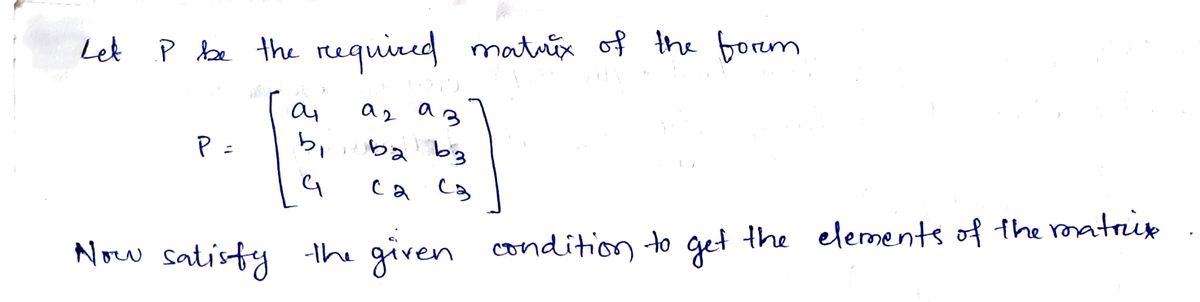 Let P be the required matrix of the form
P = [ a₁ a₂ a₃
b₁ b₂ b₃
c₁ c₂ c₃ ]
Now satisfy the given condition to get the elements of the matrix.